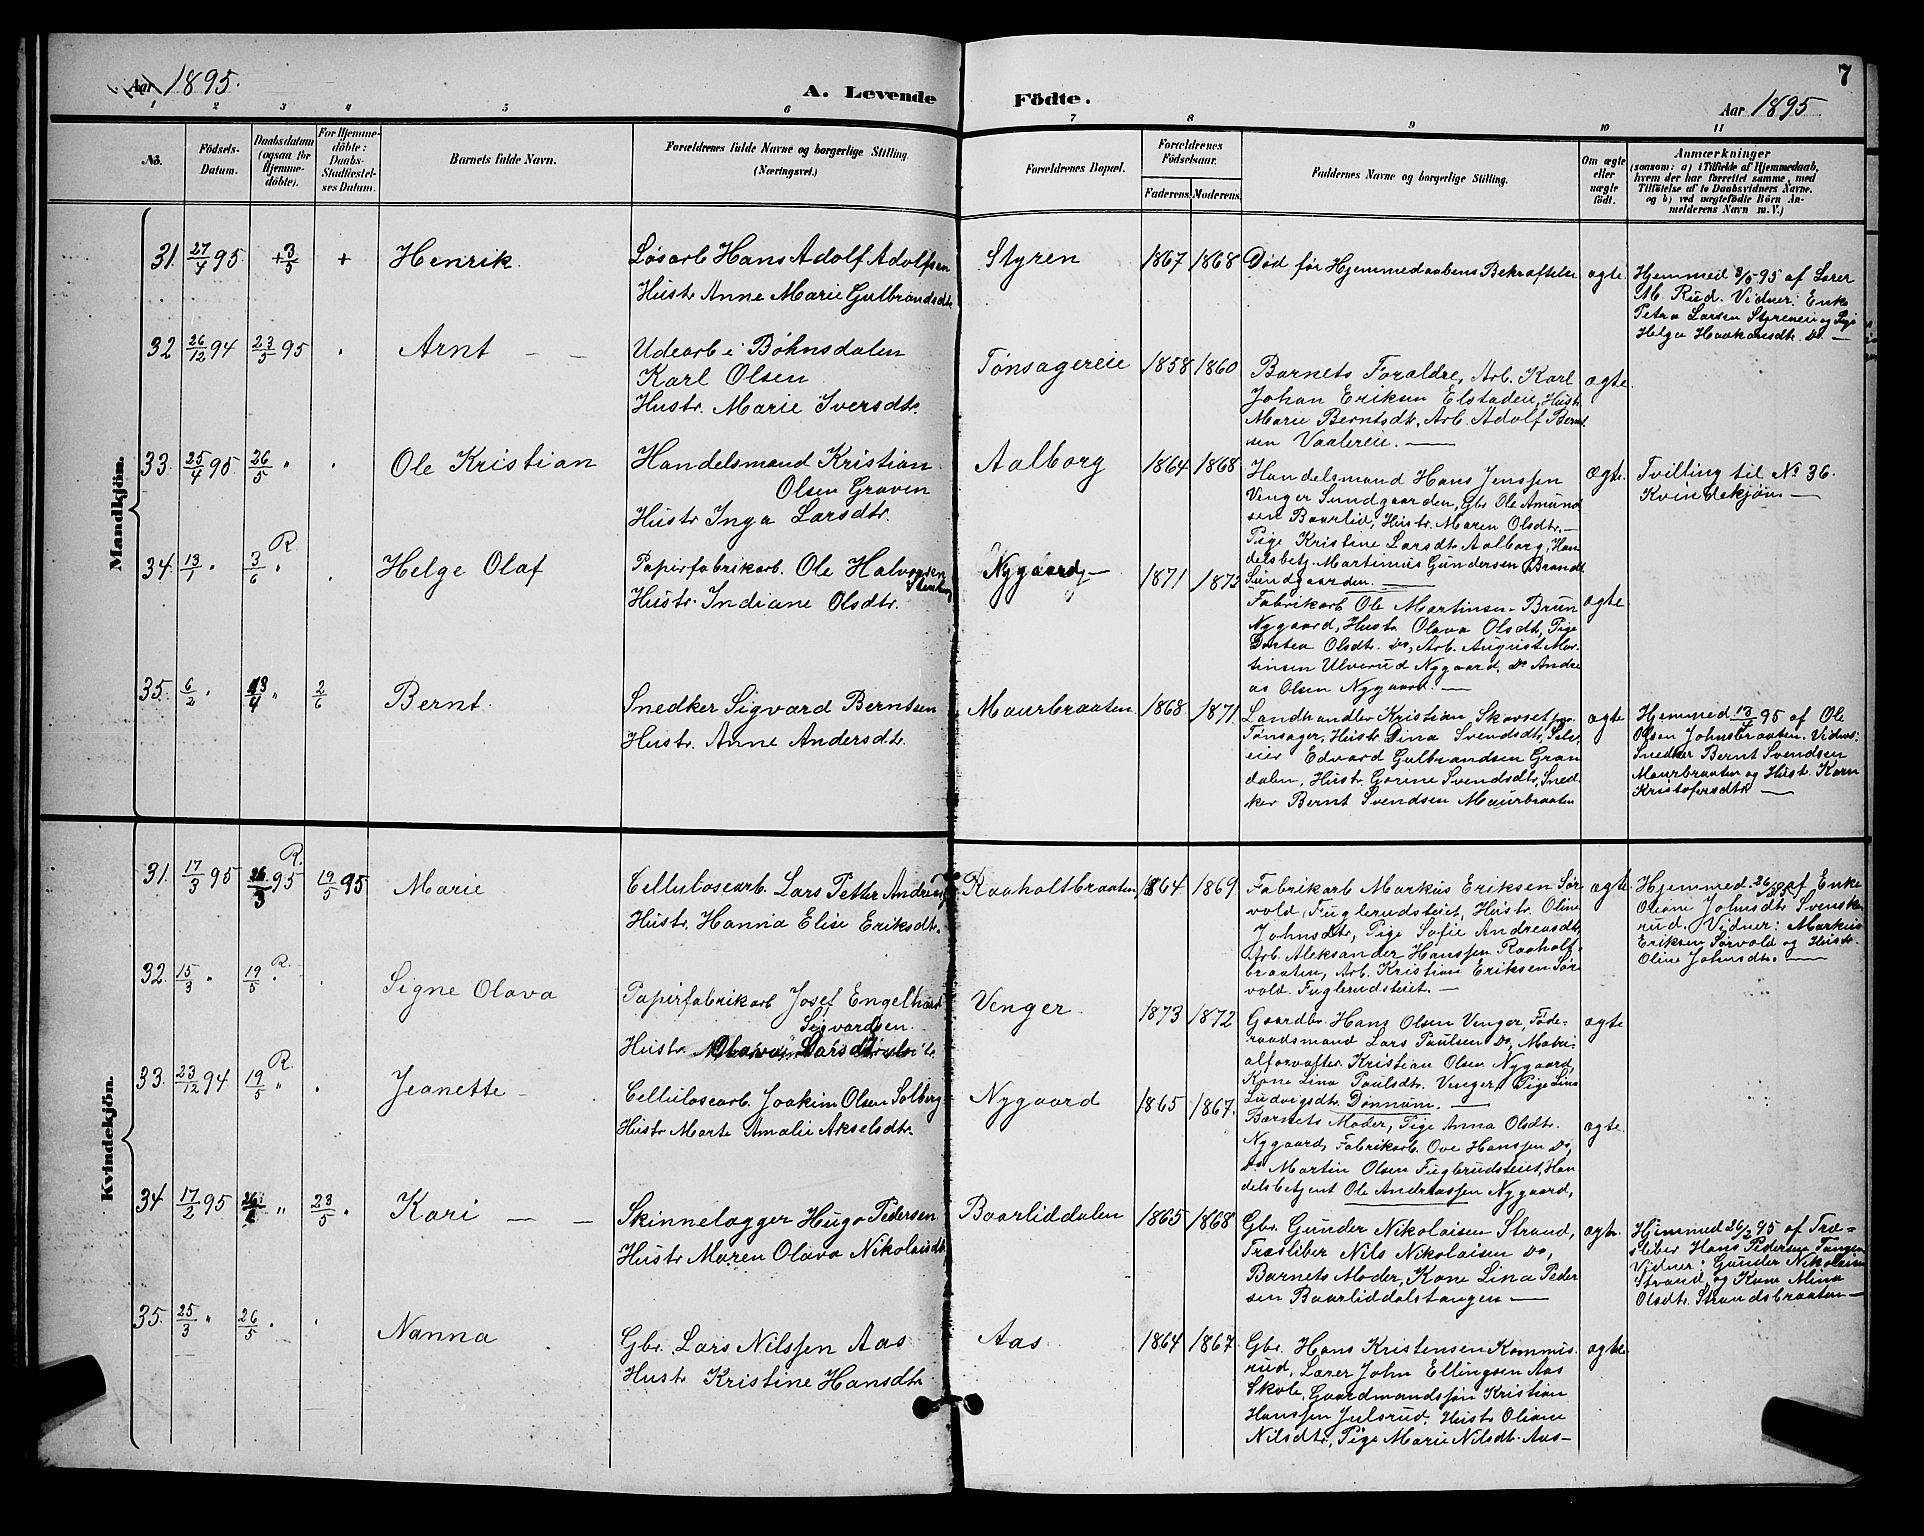 Aar 1895.
A. Levende Födte.
7
Aar 1895
1 2 3 4 5 6 7 8 9 10 11
No.
Födsels-
Datum.
Daabsdatum
(ogsaa for
Hjemme-
döbte).
For Hjemme-
döbte:
Daabs-
Stadfæstel-
ses Datum.
Barnets fulde Navn.
Forældrenes fulde Navne og borgerlige Stilling.
(Næringsvei.)
Forældrenes Bopæl.
Forældrenes
Födselsaar.
Faderens. Moderens.
Faddernes Navne og borgerlige Stilling.
Om ægte
eller
uægte
födt.
Anmærkninger
(saasom: a) i Tilfælde af Hjemmedaab,
hvem der har forrettet samme, med
Tilföielse af to Daabsvidners Navne.
og b) ved uægtefödte Börn An-
melderens Navn m. V.)
Mandkjön.
31. 27/4 95. +3/5 + Henrik.
Løsarb Hans Adolf Adolfsen
Hustr Anne Marie Gulbrandsdtr
Styren 1867 1868
Død før Hjemmedaabens Bekræftelse
ægte
Hjemmed 3/5 95 af Lærer
M. Rud. Vidner: Enke
Petra Larsen Styreneie og Pige
Helga Haakonsdtr. Do. —
32 26/12 94 23/5 95 Arnt — —
Udearb i Bøhnsdalen
Karl Olsen
Hustr. Marie Iversdtr.
Tønsagereie 1858 1860
Barnets Forældre, Arb. Karl
Johan Eriksen Elstadeie, Hustr
Marie Berntsdtr, Arb. Adolf Bernt
sen Vaalereie. —
ægte
33. 25/4 95 26/5 " Ole Kristian
Handelsmand Kristian
Olsen Graven
Hustr Inga Larsdtr.
Aalborg 1864 1868
Handelsmand Hans Jenssen
Venger Sundgaarden, Gbr Ole Amund
sen Baarlid, Hustr. Maren Olsdtr.—
Pige Kristine Larsdtr Aalborg, Han
delsbetj. Martinius Gundersen Brandt
Sundgaarden. —
Ægte.
Tvilling til No 36.
Kvindekjøn —
34. 13/1 " 3/6 " R. Helge Olaf
Papirfabrikarb. Ole Halvorsen
Hustr. Indiane Olsdtr.
Nygaard — 1871 1872
Fabrikarb Ole Martinsen Brun
Nygaard, Hustr Olava Olsdtr, Pige
Dortea Olsdtr. Do, Arb. August Mar
tinsen Ulverud Nygaard, Do Andre
as Olsen Nygaard. —
ægte
35. 6/2 " 13/4 " 2/6 Bernt.
Snedker Sigvard Berntsen
Hustr. Anne Andersdtr.
Maurbraaten 1868 1871.
Landhandler Kristian Skovset
Tønsager, Hustr Dina Svendsdtr, Selv
eier Edvard Gulbrandsen Gran
dalen, Hustr. Gorine Svendsdtr, Sned
ker Bernt Svendsen Maurbraaten
ægte
Hjemmed 13/4 95 af Ole
Olsen Johnsbraaten. Vidner:
Snedker Bernt Svendsen
Maurbraaten og Hustr. Karn
Kristofersdtr —
Kvindekjön.
31. 17/3 95 26/3 95 R. 19/5 95 Marie
Cellulosearb. Lars Petter Andersen
Hustr. Hanna Elise Eriksdtr.
Raaholtbraaten 1864 1869
Fabrikarb Markus Eriksen Sør
vold, Fuglerudseiet, Hustr. Oline
Johnsdtr, Pige Sofie Andreasdtr,
Arb. Aleksander Hanssen Raaholt
braaten, Arb. Kristian Eriksen Sør
vold. Fuglerudseiet. —
ægte
Hjemmed. 26/3 95 af Enke
Oliane Johnsdtr Svenske
rud. Vidner: Markus
Eriksen Sørvold og Hustr.
Oline Johnsdtr. —
32. 15/3 " 19/5 " R. Signe Olava
Papirfabrikarb Josef Engelhard
Sigvardsen.
Hustr. Olava Larsdtr
Venger. 1873 1872
Gaardbr. Hans Olsen Venger, Føde-
raadsmand Lars Paulsen Do, Matri-
alforvalter Kristian Olsen Nygaard,
Kone Lina Paulsdtr. Venger, Pige Lina
Ludvigsdtr. Dønnum. —
ægte
33. 23/12 94 19/5 " R. Jeanette —
Cellulosearb. Joakim Olsen Solberg
Hustr Marte Amalie Akselsdtr.
Nygaard 1865 1867.
Barnets Moder, Pige Anna Olsdtr.
Nygaard, Fabrikarb. Ove Hanssen Do,
Do Martin Olsen Fuglerudseiet, Han
delsbetjent Ole Andreassen Nygaard,
ægte
34 17/2 95 26/2 " 23/5 " Kari — —
Skinnelægger Hugo Pedersen
Hustr Maren Olava Nikolaisdtr
Baarliddalen 1865 1868
Gbr. Gunder Nikolaisen Strand,
Træsliber Nils Nikolaisen Do,
Barnets Moder, Kone Lina Peder
sen Baarliddalstangen —
ægte.
Hjemmed 26/2 95 af Træ-
sliber Hans Pedersen Tangen
Vidner: Gunder Nikolaisen
Strand, og Kone Mina
Olsdtr. Strandsbraaten —
35. 25/3 " 26/5 " Nanna
Gbr. Lars Nilssen Aas
Hustr Kristine Hansdtr
Aas 1864 1867.
Gbr. Hans Kristensen Kommis
rud, Lærer John Ellingsen Aas
Skole, Gaardmandssøn Kristian
Hanssen Julsrud, Hustr Oliane
Nilsdtr, Pige Marie Nilsdtr. Aas —
ægte